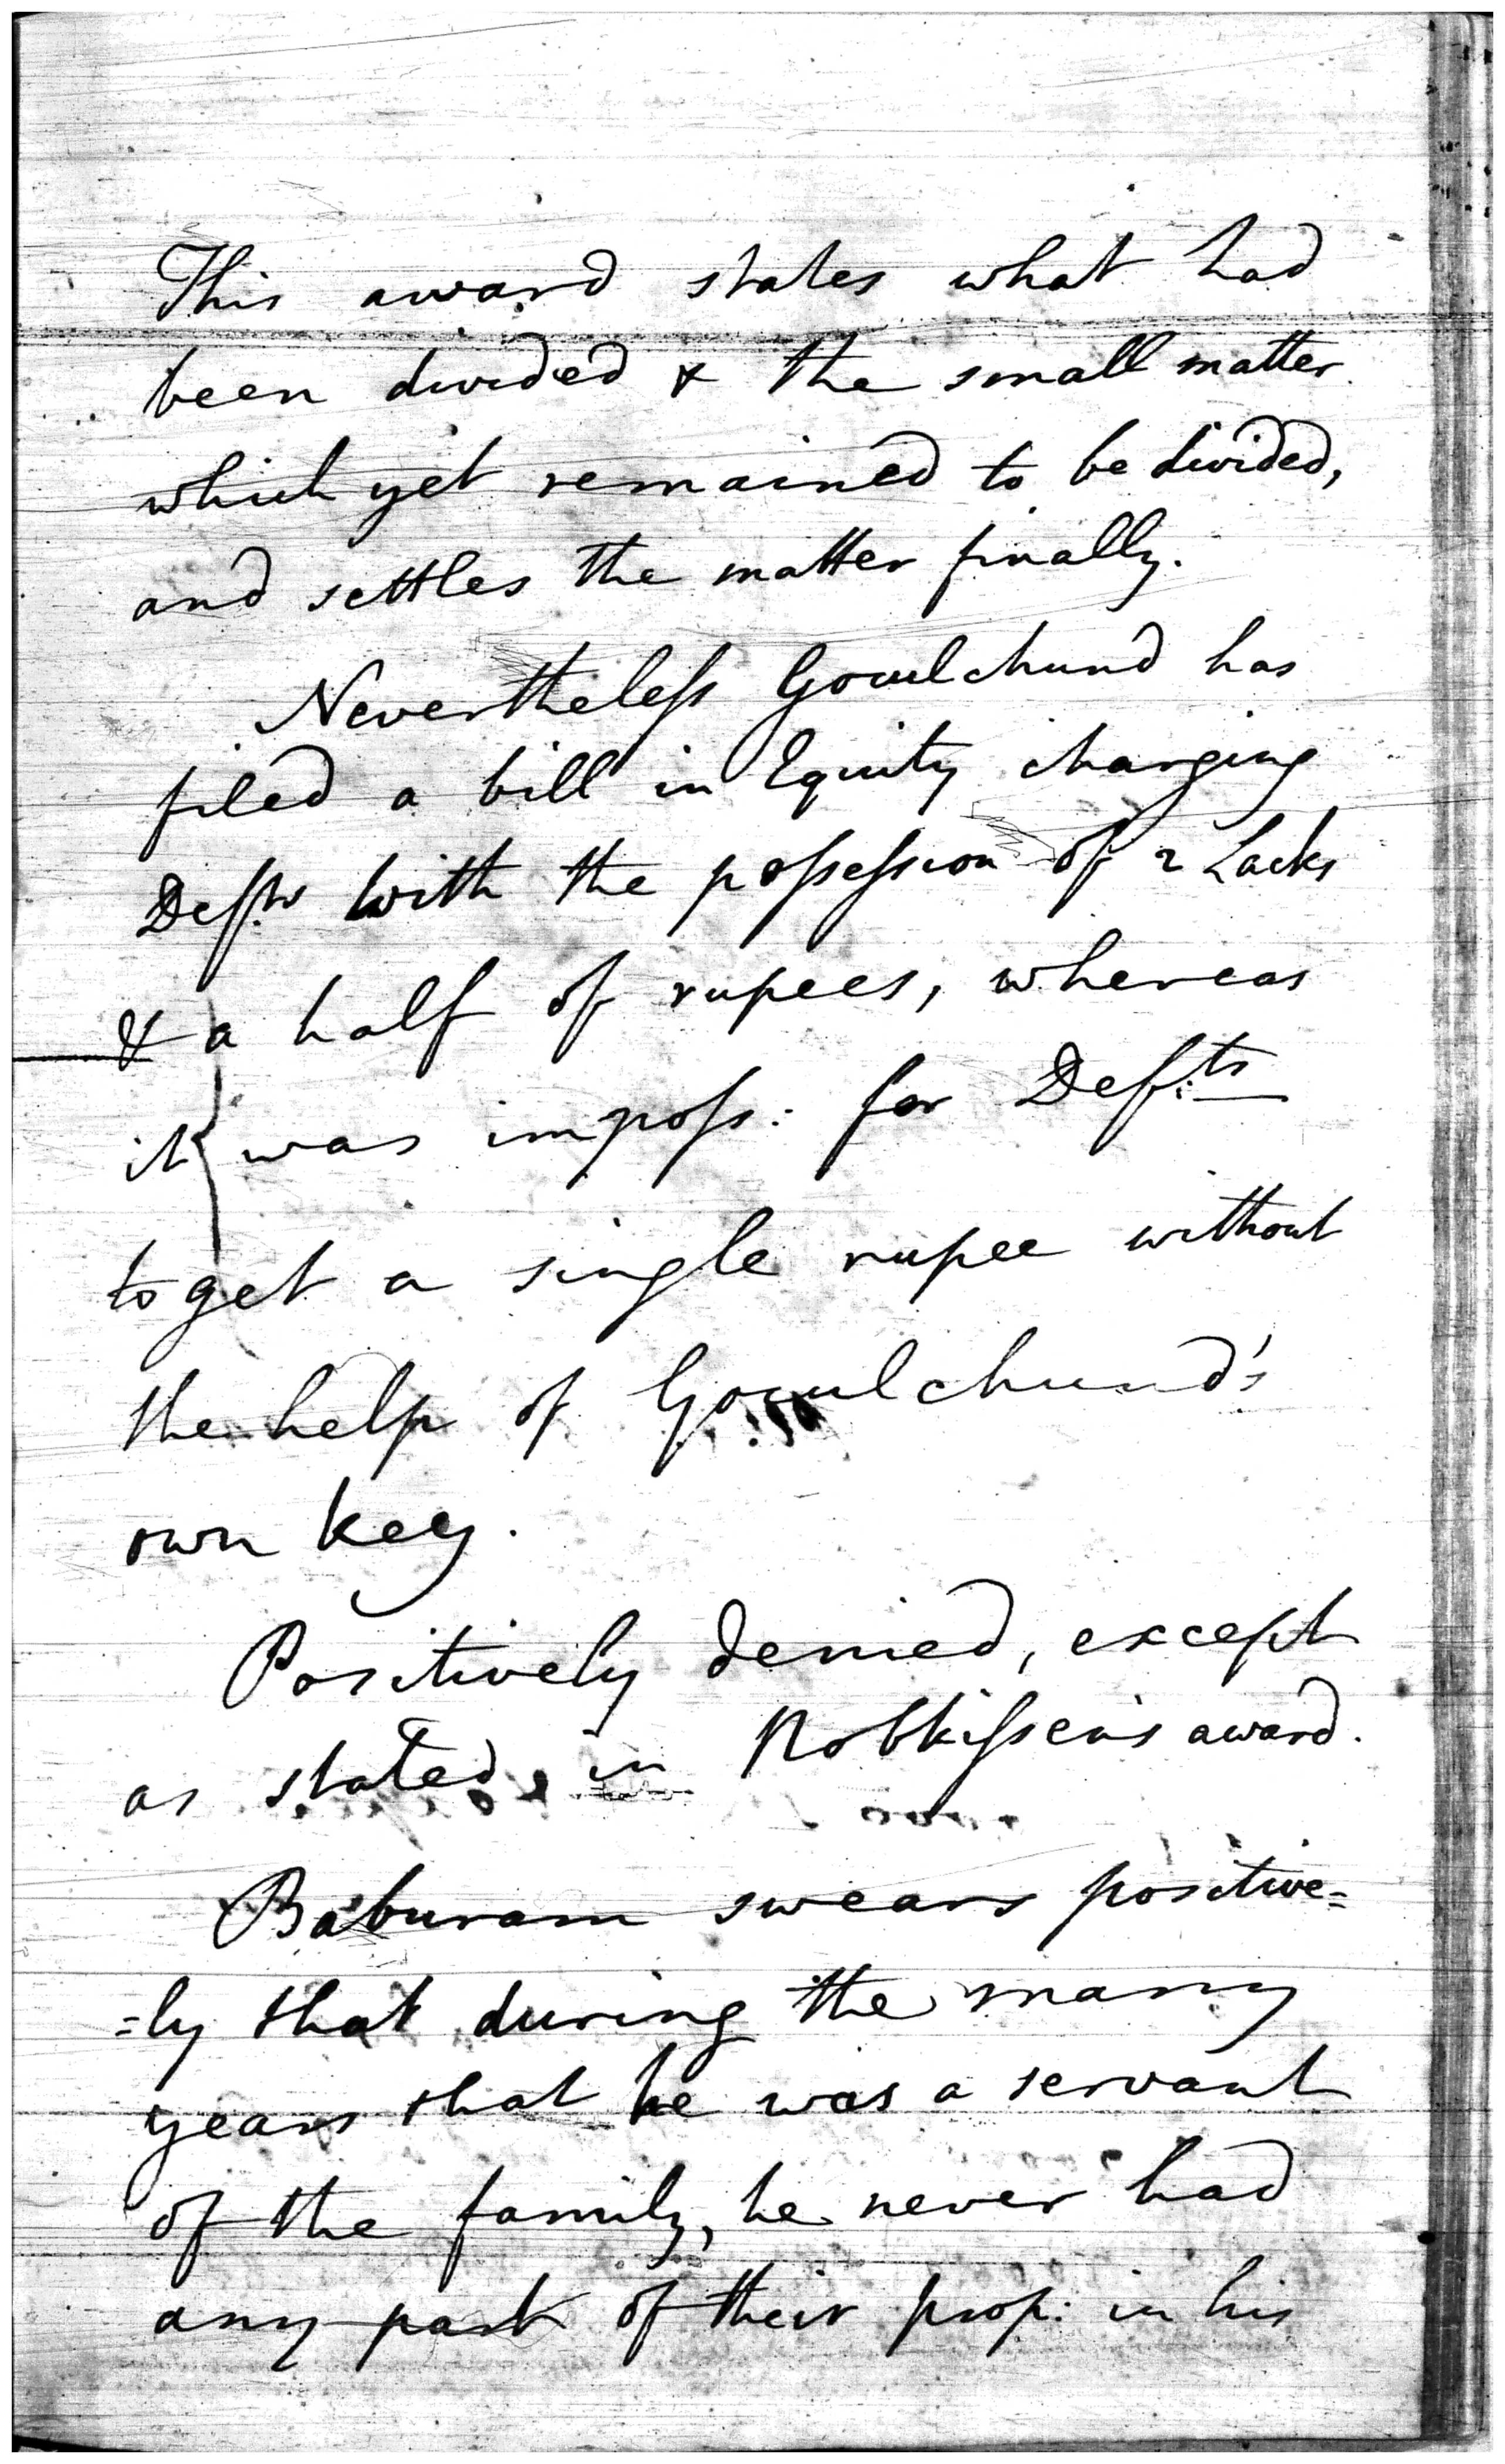 This award states what had
been divided & the small matter
which yet remained to be divided,
and settles the matter finally.
Nevertheleſs Goculchund has
filed a bill in Equity charging
Defts with the poſseſsion of 2 Lacks
& a half of rupees, whereas
it was impoſs: for Defts
to get a single rupee without
the help of Goculchund's
own key.
Positively denied, except
as stated in Nobkiſsen's award.
Baburam swears positive=
=ly that during the many
years that he was a servant
of the family, he never had
any part of their prop: in his